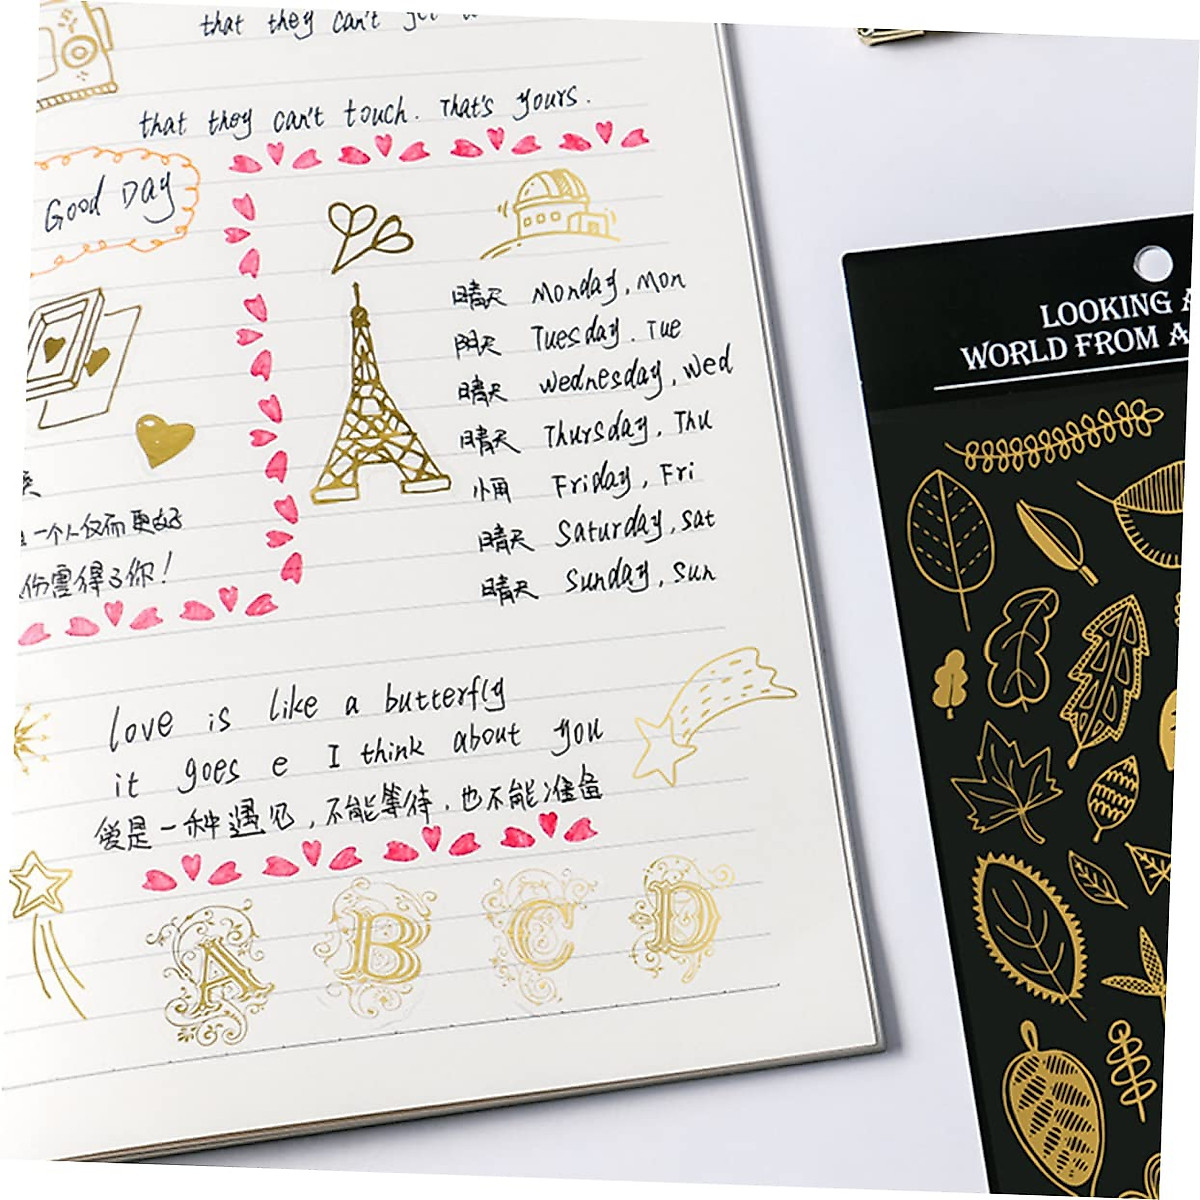 that they can't
that they can't touch. That's yours.
Good Day
晴天 Monday, Mon
阴天 Tuesday. Tue
晴天 Wednesday, Wed
晴天 Thursday, Thu
小雨 Friday, Fri
晴天 Saturday, Sat
晴天 Sunday, Sun
一个人仅而更好
你!
love is like a butterfly
it goes e I think about you
爱是一种遇见,不能等待,也不能准备
A B C D
LOOKING
WORLD FROM A